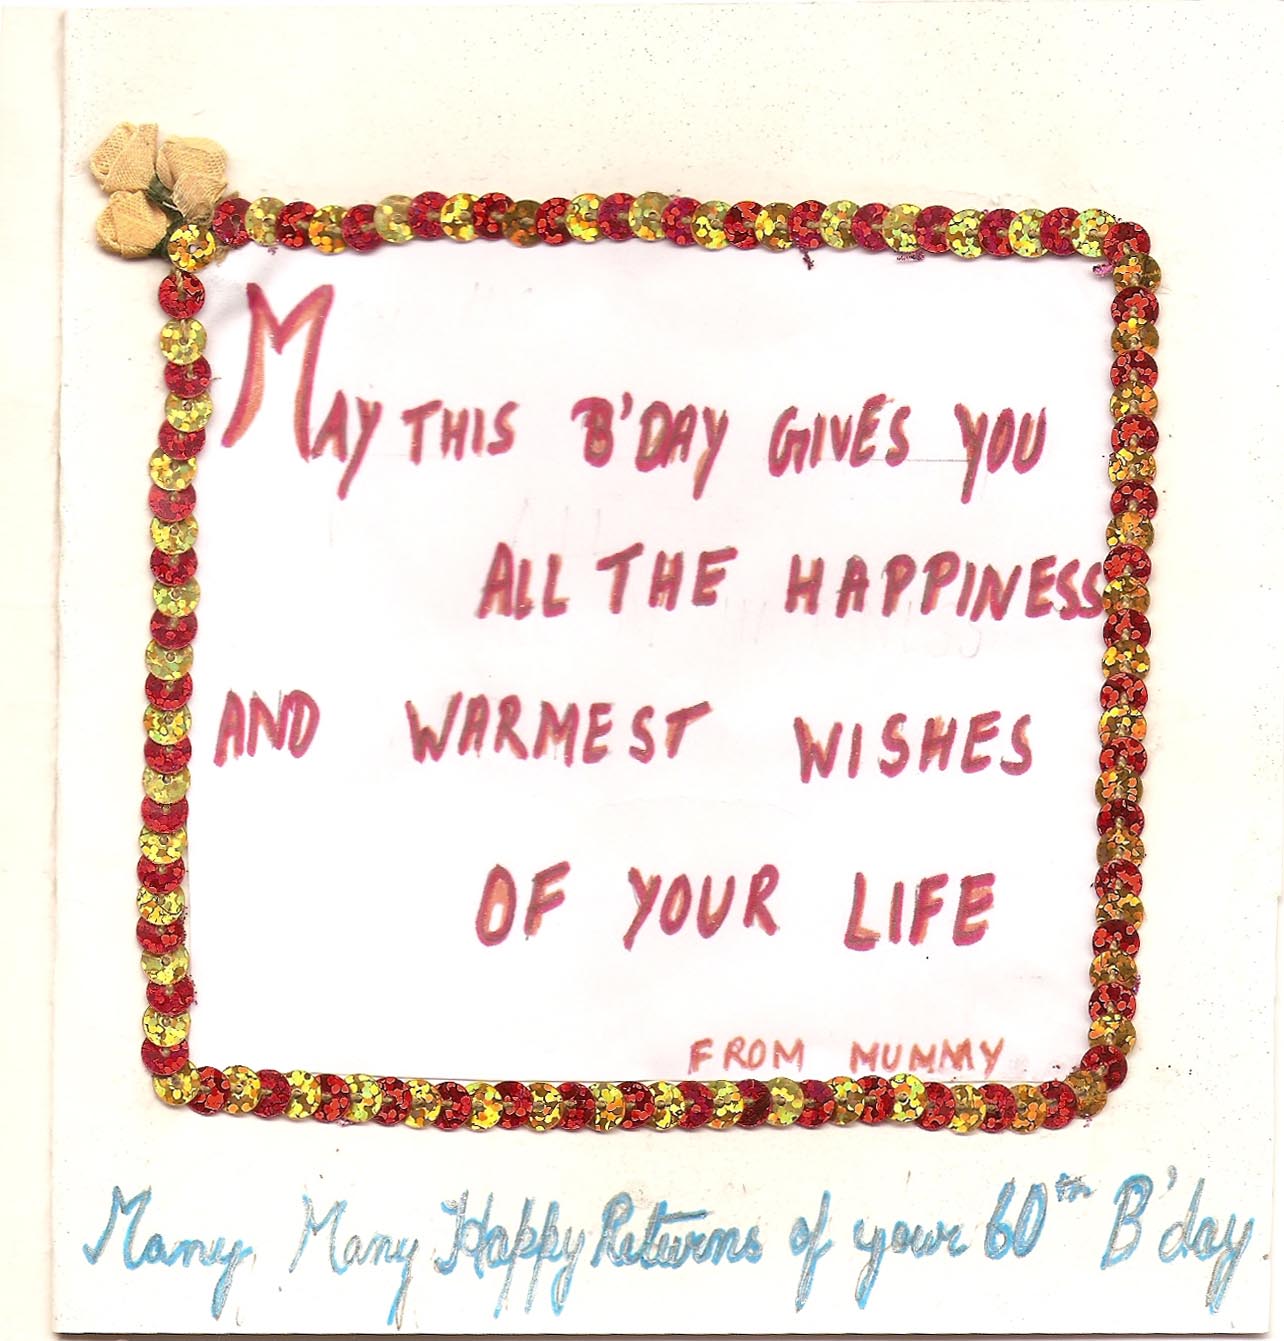 MAY THIS B'DAY GIVES YOU
ALL THE HAPPINESS
AND WARMEST WISHES
OF YOUR LIFE
FROM MUMMY
Many Many Happy Returns of your 60th B'day